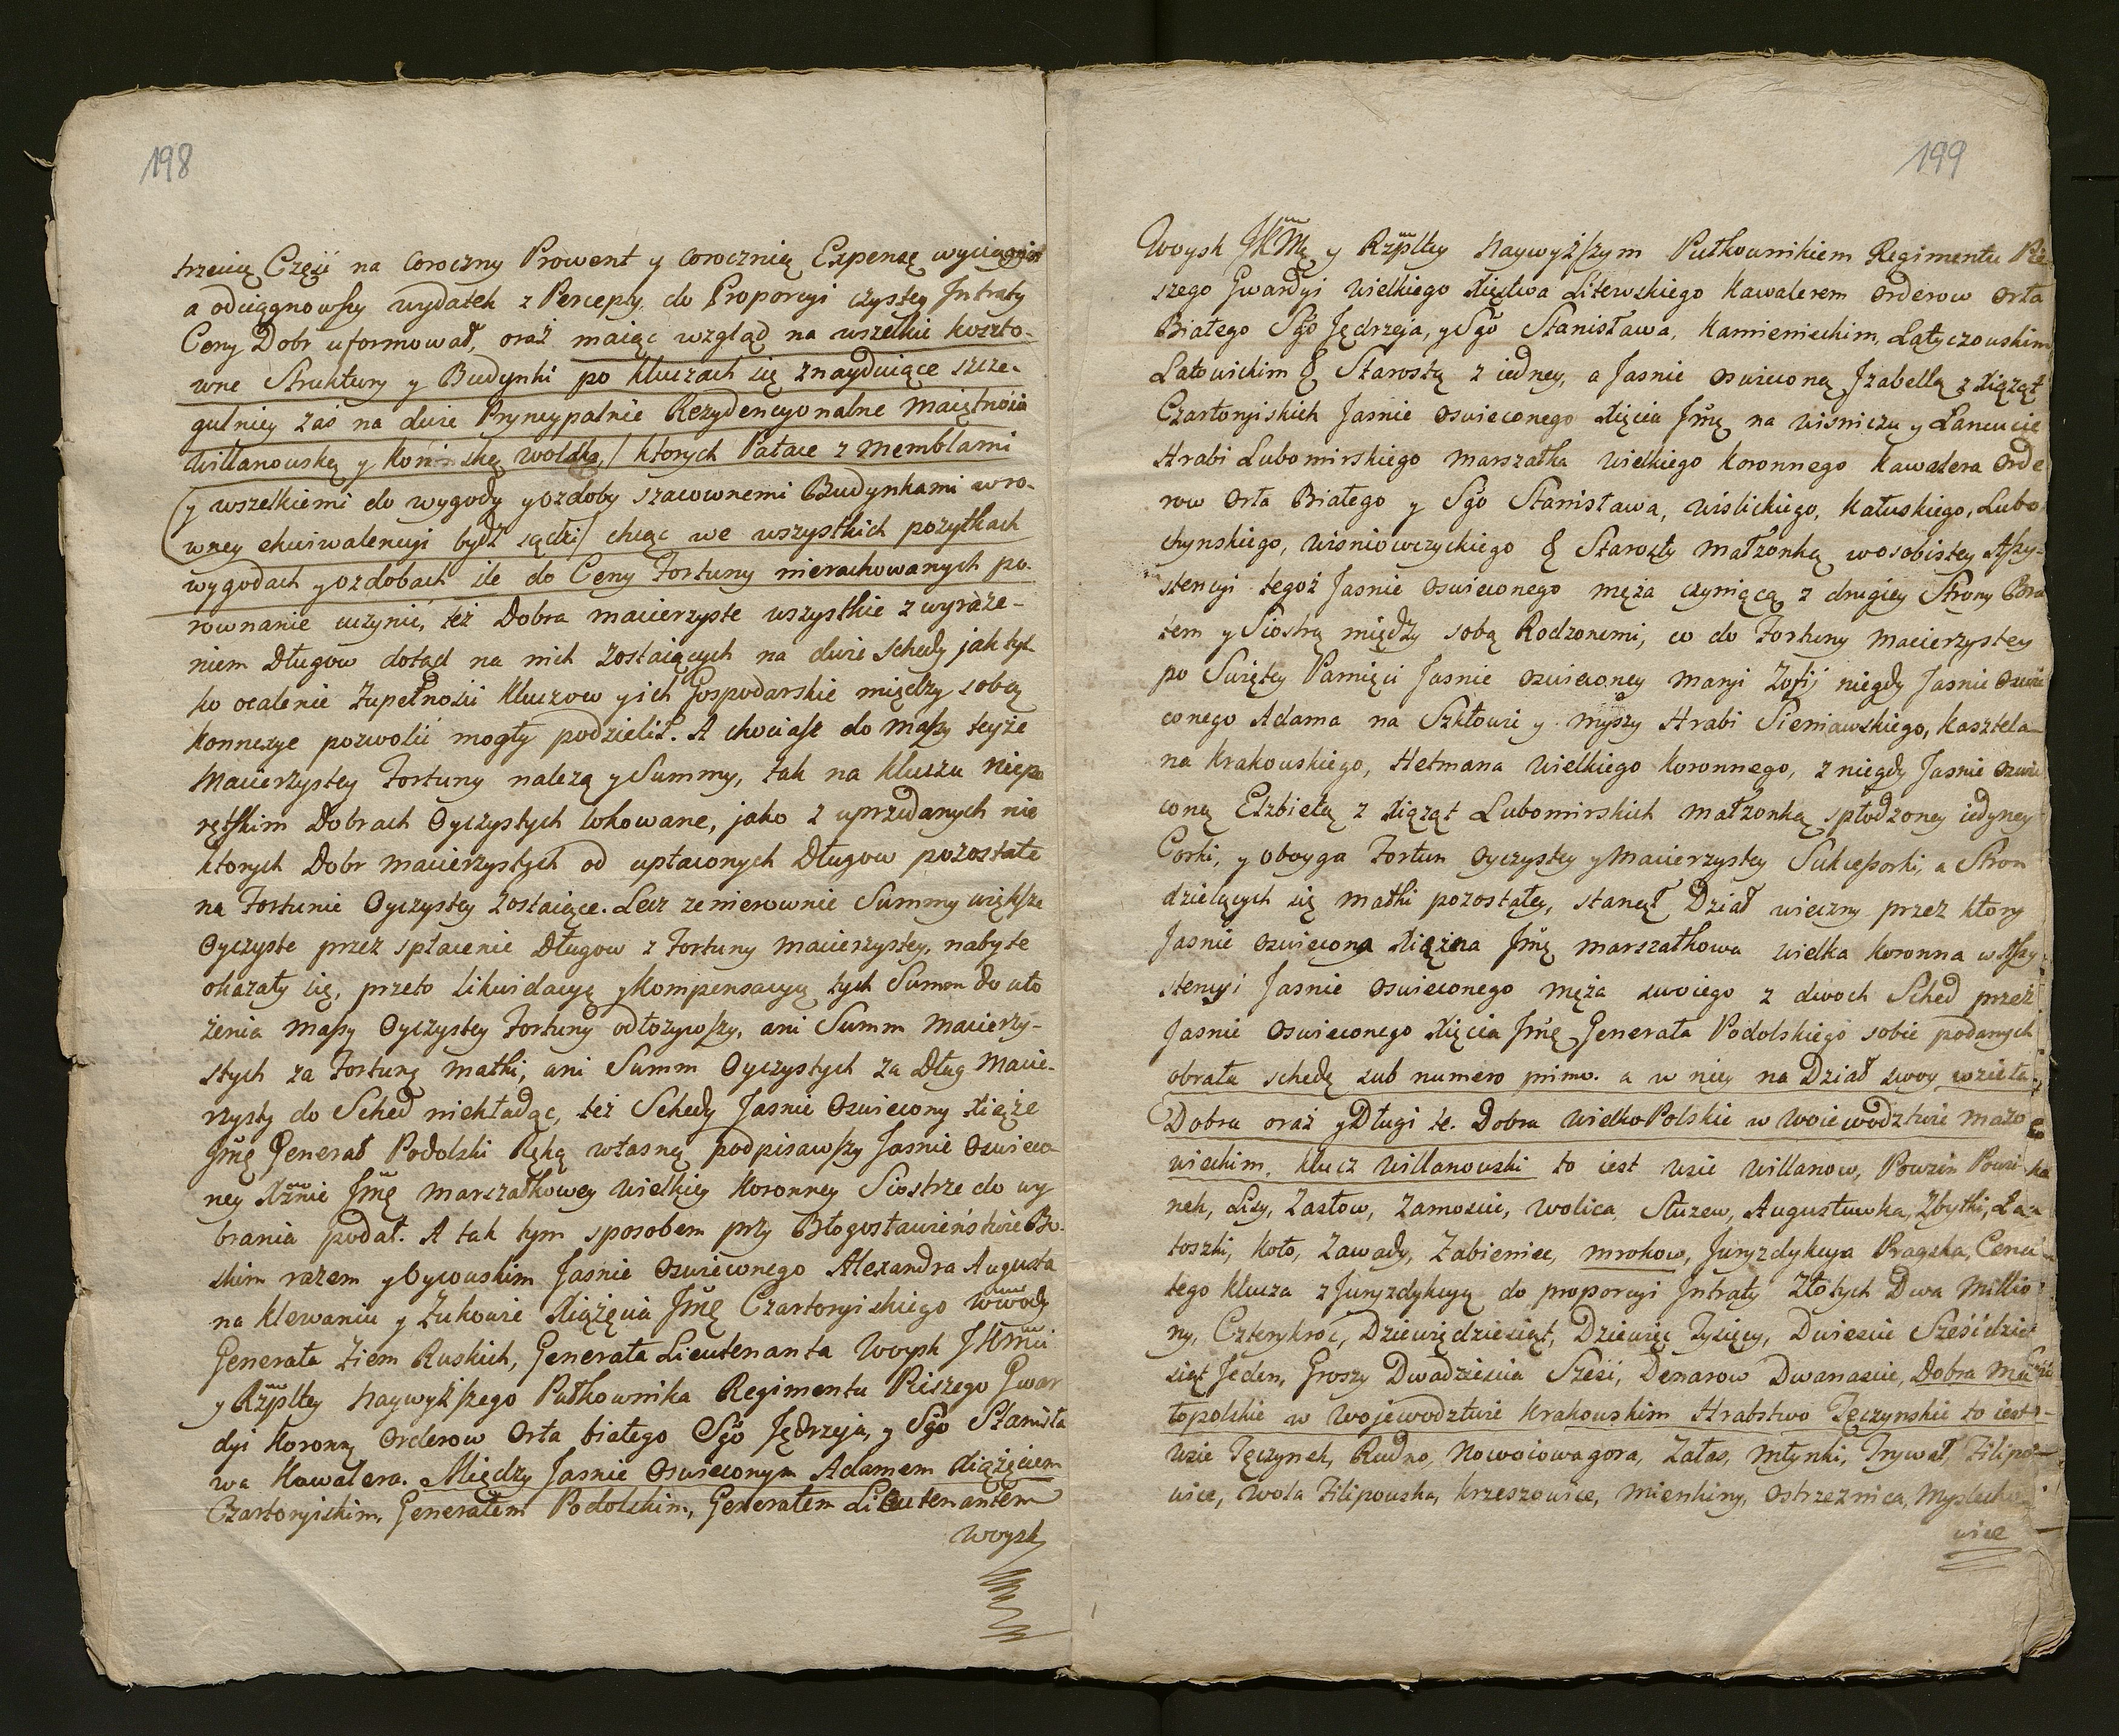 198
trzecią Część na Coroczny Prowent y Corocznią Expensę wyciągnął
a odciągnowszy wydatek z Percepty do Proporcyi czystey Intraty
Ceny Dobr uformował, oraż maiąc wzgląd na wszelkie koszto-
wne Struktury y Budynki po kluczach się znayduiące szcze-
gulniey zaś na dwie Pryncypalnie Rezydencyonalne Maiętności
Willanowską y Końińską wolską, których Pałace z Memblami
y wszelkiemi do wygody y ozdoby szacownemi Budynkami w ro-
wney ekwiwalencyi bydź sądzi / chcąc we wszystkich pożytkach
wygodach y ozdobach ile do Ceny Fortuny nierachowanych po-
rownanie uczynić, też Dobra macierzyste wszystkie z wyraże-
niem Długow dotąd na nich zostaiących na dwie Schedy jak tyl-
ko ocalenie zupełności kluczow y ich Gospodarskie między sobą
konnexye pozwolić mogły podzielił. A chociasz do Massy teyże
Macierzystey Fortuny należą y Summy, tak na kluczu Niepo
ręckim Dobrach Oyczystych lokowane, jako z uprzedanych nie
ktorych Dobr macierzystych od upłaconych Długow pozostałe
na Fortunie Oyczystey zostaiące. Lecz ze nierownie Summy większe
Oyczyste przez spłacenie Długow z Fortuny macierzystey, nabyte
okazały się, przeto likwidacyę y kompensacyą tych Summ do uło
żenia massy Oyczystey Fortuny odłożywszy, ani Summ Macierzy-
stych za Fortunę matki, ani Summ Oyczystych za Dług Macie-
rzysty do Sched niekładąc, też Schedy Jasnie Oswiecony Xiąże
Jmć Generał Podolski Ręką własną podpisawszy Jasnie Oswieco
ney Xżnie Jmć Marszałkowey Wielkiey Koronney Siostrze do wy
brania podał. A tak tym sposobem przy Błogosławieństwie Bo-
skim razem y Oycowskim Jasnie Oswieconego Alexandra Augusta
na klewaniu y Zukowie Xiążęcia Jmć Czartoryiskiego Wwody
Generała Ziem Ruskich, Generała Lieutenanta Woysk JKMci
y Rzpltey Naywyższego Pułkownika Regimentu Piszego Gwar
dyi Koronny Orderow Orła białego Sgo Jędrzeja, y Sgo Stanisła
wa Kawalera. Między Jasnie Oswieconym Adamem Xiążęciem
Czartoryiskim, Generałem Podolskim, Generałem Lieutenantem
Woysk
199
Woysk JKMć y Rzpltey Naywyższym Pułkownikiem Regimentu Pie
szego Gwardyi Wielkiego Xięstwa Litewskiego Kawalerem Orderow Orła
Białego Sgo Jędrzeja, y Sgo Stanisława, Kamienieckim, Latyczowskim
Latowickim & Starostą z iedney, a Jasnie Oswieconą Jzabellą z Xiążąt
Czartoryiskich Jasnie Oswieconego Xięcia Jmć na Wisniczu y Lancucie
Hrabi Lubomirskiego Marszałka Wielkiego Koronnego Kawalera Orde
row Orła Białego y Sgo Stanisława, Wislickiego, Kałuskiego, Lubo
chynskiego, Wisniowczyckiego & Starosty małżonką w osobistey Assy-
stencyi tegoż Jasnie Oswieconego męża czyniącą z drugiey Strony Bra
tem y Siostrą między sobą Rodzonemi, co do Fortuny Macierzystey
po Swiętey Pamięci Jasnie Oswieconey Maryi Zofij niegdy Jasnie Oswie
conego Adama na Szkłowie y Myszy Hrabi Sieniawskiego, Kasztela
na Krakowskiego, Hetmana Wielkiego Koronnego, z niegdy Jasnie Oswie
coną Elżbietą z Xiążąt Lubomirskich małżonką spłodzoney iedyney
Corki, y oboyga Fortun Oyczystey y Macierzystey Sukcessorki, a Stron
dzielących się matki pozostałey, stanął Dział wieczny przez ktory
Jasnie Oswiecona Xięzna Jmć Marszałkowa Wielka Koronna w Assy
stencyi Jasnie Oswieconego męża swoiego z dwoch Sched przez
Jasnie Oswieconego Xięcia Jmć Generała Podolskiego sobie podanych
obrała schedę sub numero primo. a w niey na Dział swoy wzieła
Dobra oraż y Długi te. Dobra WielkoPolskie w Woiewodztwie Mazo
wieckim, Klucz Willanowski to iest wsie Willanow, Powzin Powzi
nek, Lisy, Zastow, Zamoscie, Wolica, Służew, Augustuwka, Zbytki, La
toszki, Koło, Zawady, Zabieniec, Mrokow, Juryzdykcya Pragska, Cena
tego klucza z Juryzdykcyą do proporcyi Intraty Złotych Dwa Millio
ny, Czterykroć, Dziewięćdziesiąt, Dziewięć Tysięcy, Dwiescie Sześćdzie
siąt Jeden, Groszy Dwadziescia Sześć, Denarow Dwanascie, Dobra Ma
łopolskie w Wojewodztwie Krakowskim Hrabstwo Tęczynskie to iest
wsie Tęczynek, Rudno, Nowoiowagora, Załas, Młynki, Frywał, Filipo
wice, Wola Filipowska, Krzeszowice, Mienkiny, Ostrzeznica, Myslecho
wice